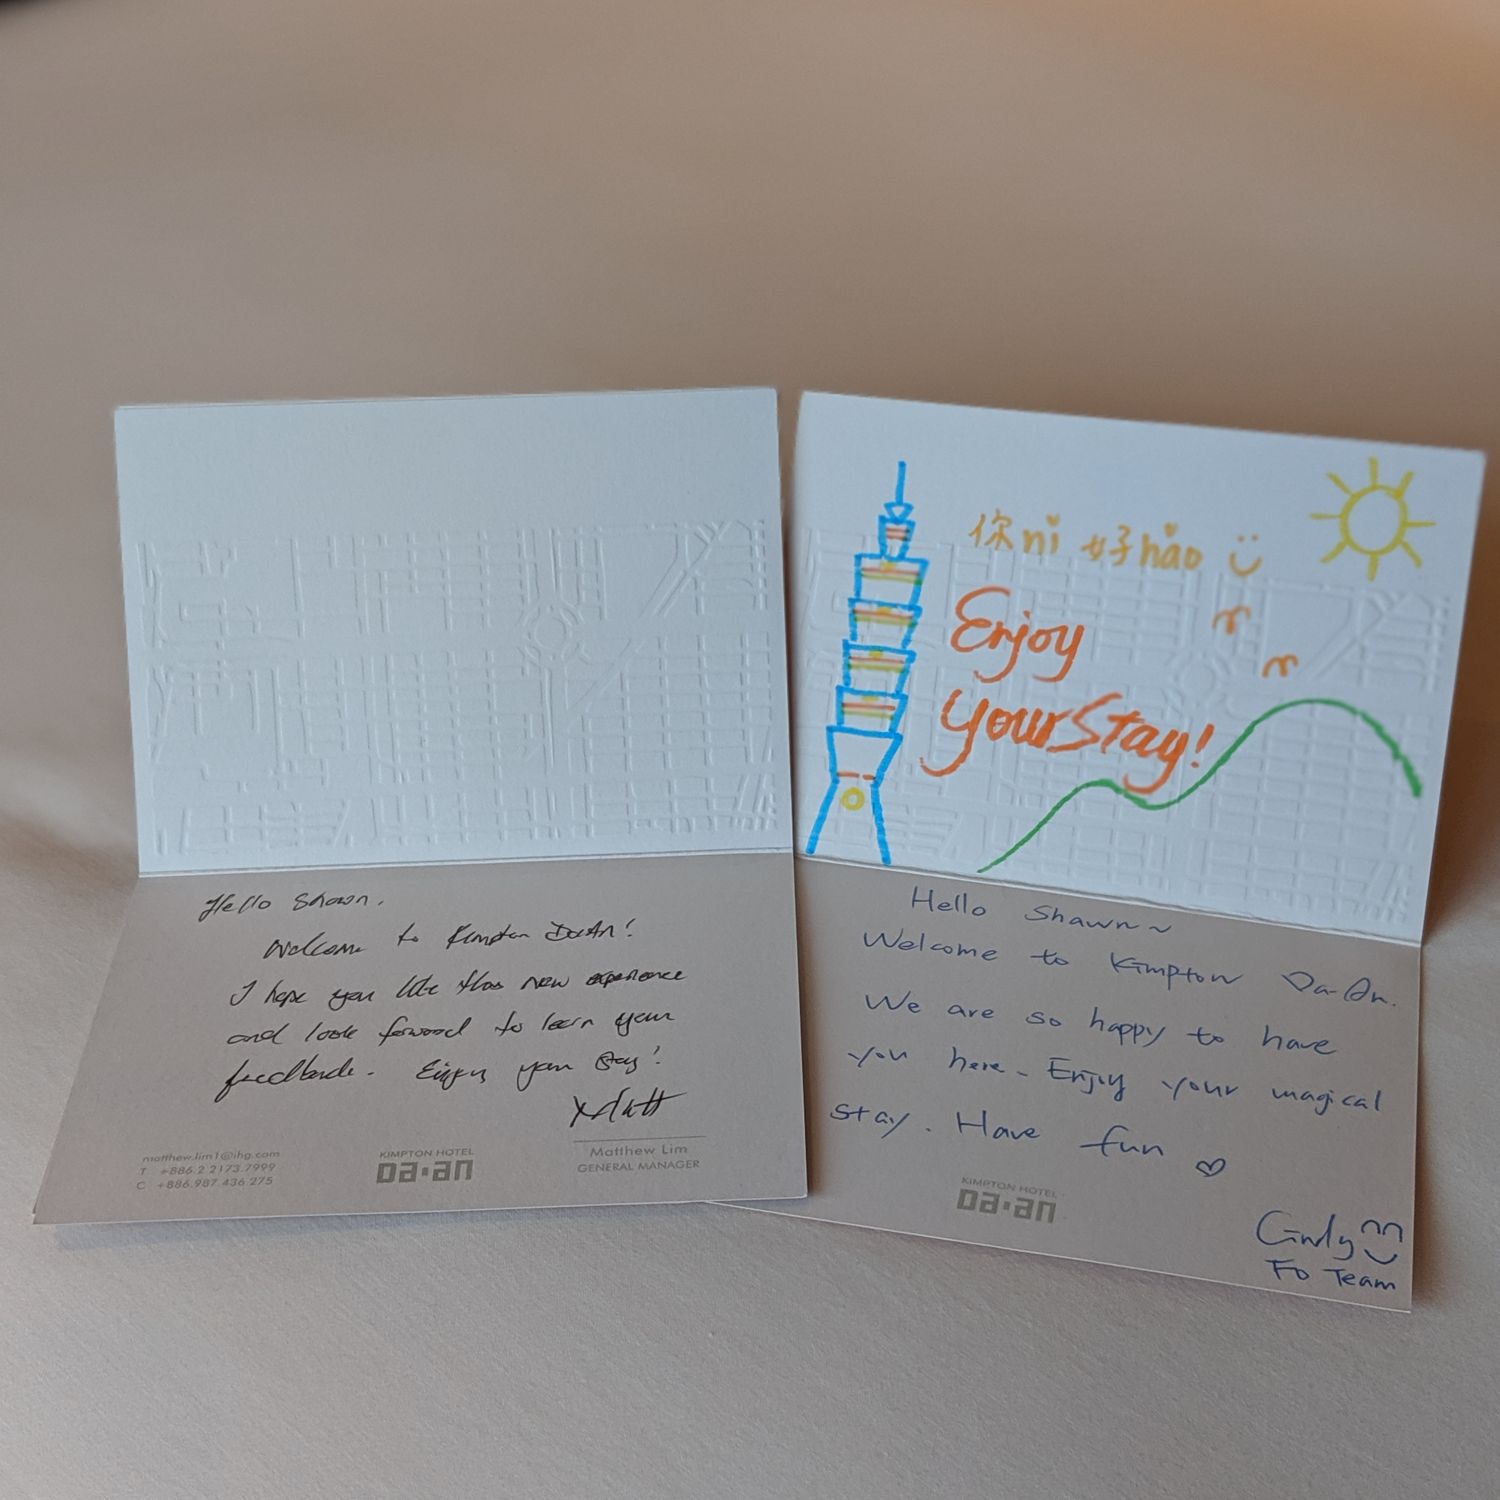 Hello Shawn,
Welcome to Kimpton DaAn!
I hope you like this new experience
and look forward to learn your
feedback. Enjoy your stay!
Matt
Matthew Lim
GENERAL MANAGER
matthew.lim1@ihg.com
T +886.2.2173.7999
C +886.987.436.275
KIMPTON HOTEL
Da·an
你nǐ 好hǎo
Enjoy
your Stay!
Hello Shawn~
Welcome to Kimpton Da-An.
We are so happy to have
you here. Enjoy your magical
stay. Have fun ♡
KIMPTON HOTEL
Da·an
Cindy
FO Team